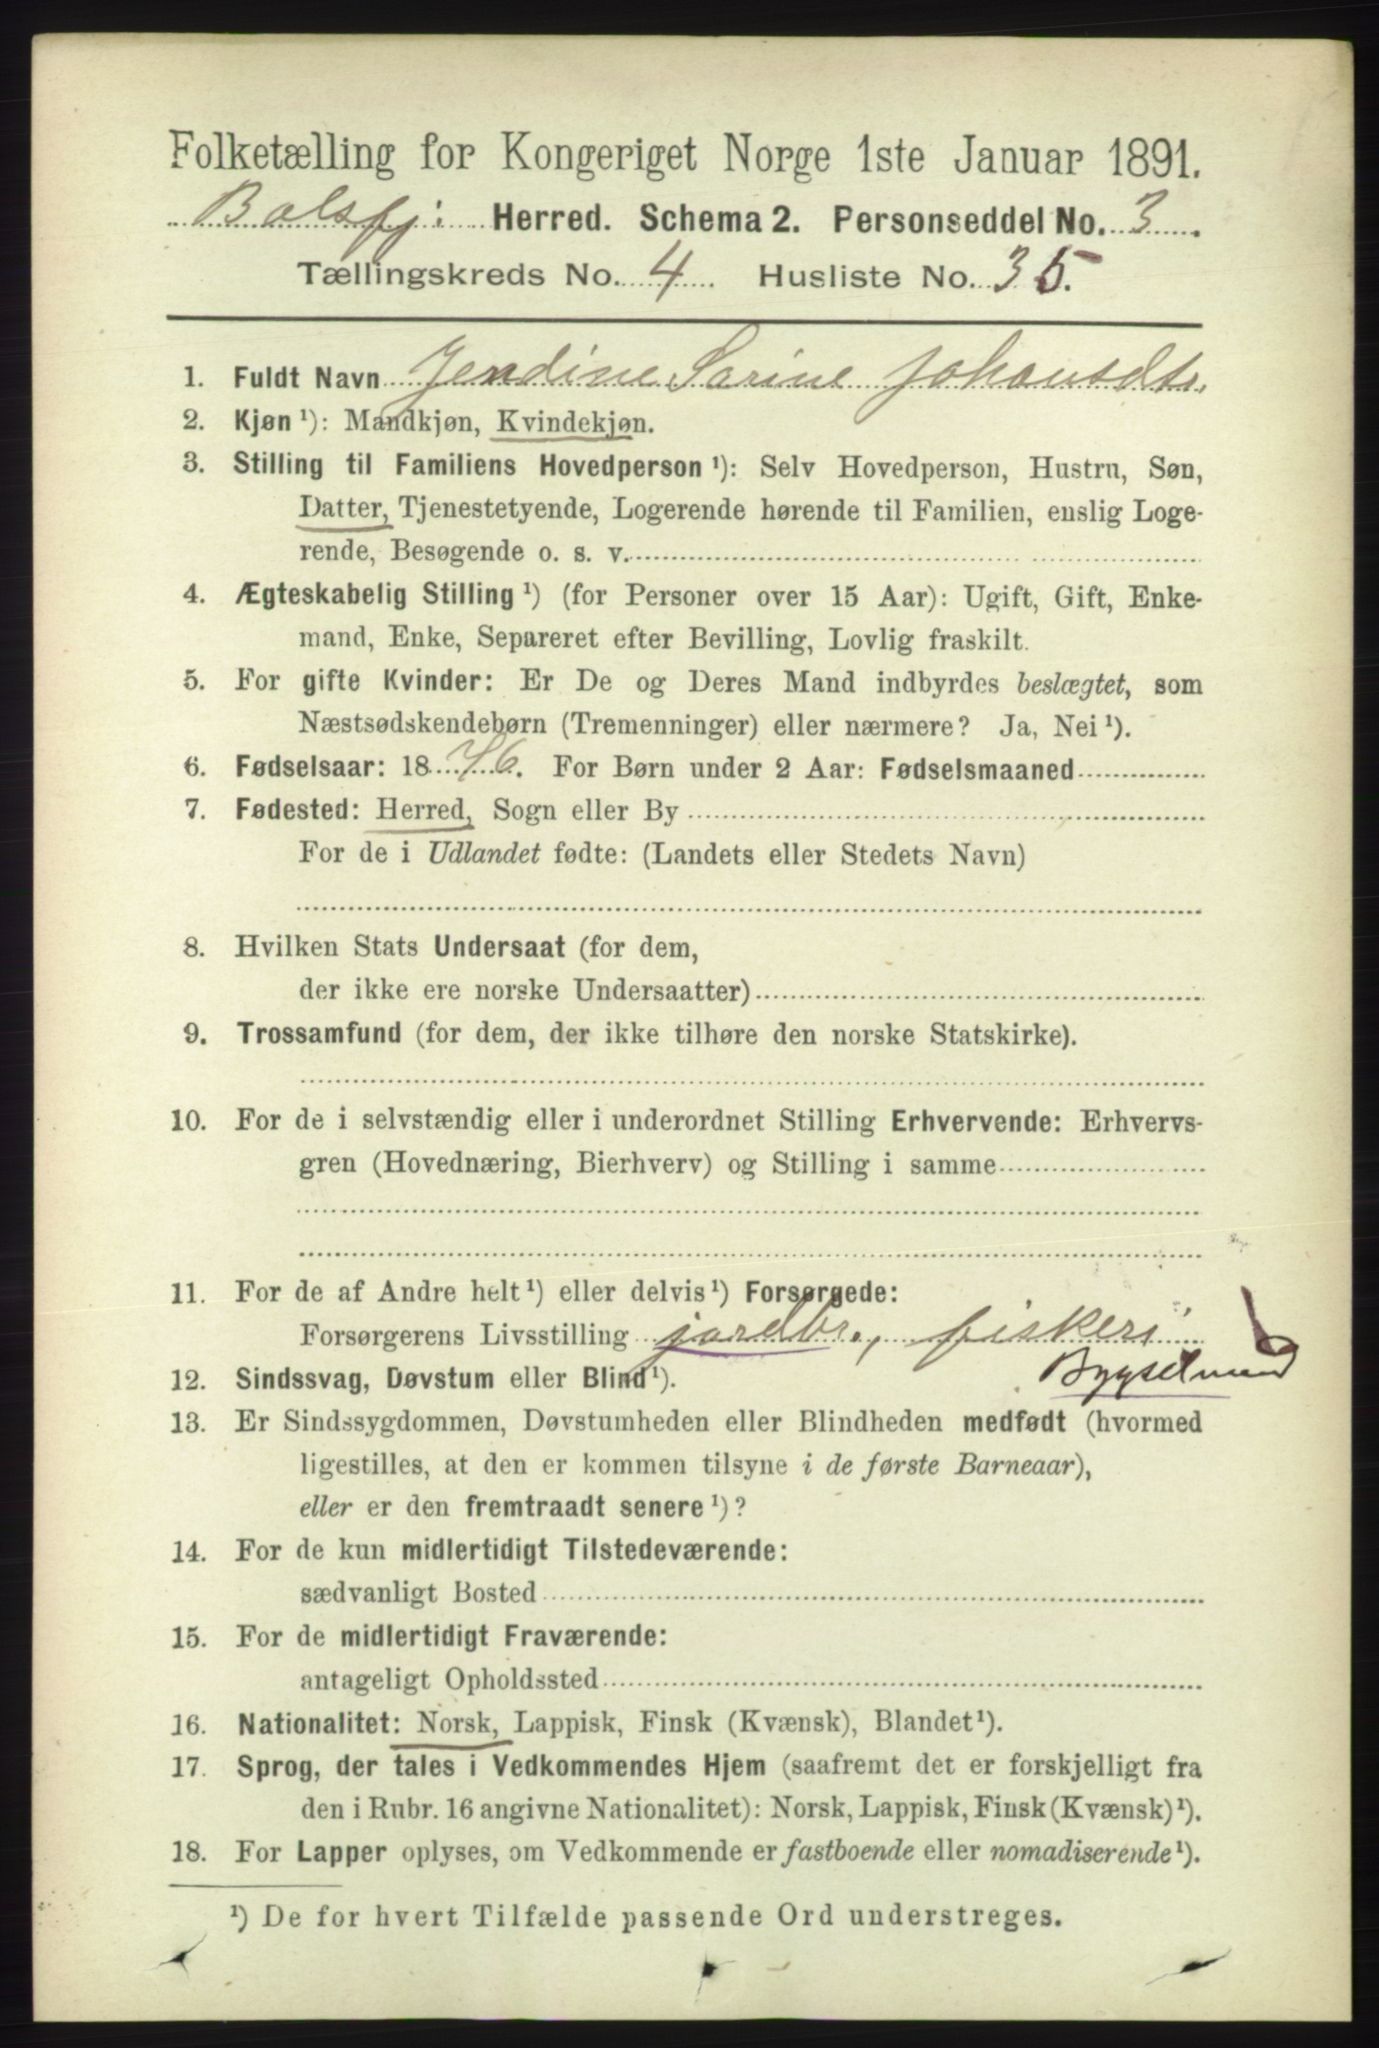 Folketælling for Kongeriget Norge 1ste Januar 1891.
Balsfj: Herred. Schema 2. Personseddel No. 3.
Tællingskreds No. 4 Husliste No. 35.
1. Fuldt Navn Jendine Sarine Johansdtr.
2. Kjøn ¹): Mandkjøn, Kvindekjøn.
3. Stilling til Familiens Hovedperson ¹): Selv Hovedperson, Hustru, Søn,
Datter, Tjenestetyende, Logerende hørende til Familien, enslig Loge-
rende, Besøgende o. s. v.
4. Ægteskabelig Stilling ¹) (for Personer over 15 Aar): Ugift, Gift, Enke-
mand, Enke, Separeret efter Bevilling, Lovlig fraskilt.
5. For gifte Kvinder: Er De og Deres Mand indbyrdes beslægtet, som
Næstsødskendebørn (Tremenninger) eller nærmere? Ja, Nei ¹).
6. Fødselsaar: 1876. For Børn under 2 Aar: Fødselsmaaned
7. Fødested: Herred, Sogn eller By
For de i Udlandet fødte: (Landets eller Stedets Navn)
8. Hvilken Stats Undersaat (for dem,
der ikke ere norske Undersaatter)
9. Trossamfund (for dem, der ikke tilhøre den norske Statskirke).
10. For de i selvstændig eller i underordnet Stilling Erhvervende: Erhvervs-
gren (Hovednæring, Bierhverv) og Stilling i samme
11. For de af Andre helt ¹) eller delvis ¹) Forsørgede:
Forsørgerens Livsstilling jordbr., fiskeri
Bygselmand
12. Sindssvag, Døvstum eller Blind ¹).
13. Er Sindssygdommen, Døvstumheden eller Blindheden medfødt (hvormed
ligestilles, at den er kommen tilsyne i de første Barneaar),
eller er den fremtraadt senere ¹)?
14. For de kun midlertidigt Tilstedeværende:
sædvanligt Bosted
15. For de midlertidigt Fraværende:
antageligt Opholdssted
16. Nationalitet: Norsk, Lappisk, Finsk (Kvænsk), Blandet ¹).
17. Sprog, der tales i Vedkommendes Hjem (saafremt det er forskjelligt fra
den i Rubr. 16 angivne Nationalitet): Norsk, Lappisk, Finsk (Kvænsk) ¹).
18. For Lapper oplyses, om Vedkommende er fastboende eller nomadiserende ¹).
¹) De for hvert Tilfælde passende Ord understreges.